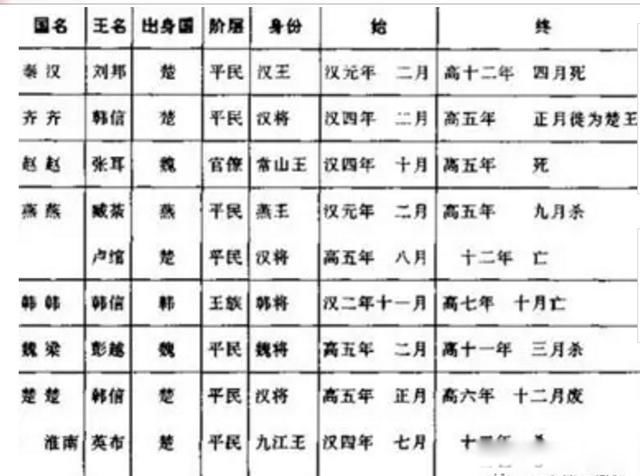 国名 王名 出身国 阶层 身份 始 终
秦 汉 刘邦 楚 平民 汉王 汉元年 二月 高十二年 四月死
齐 齐 韩信 楚 平民 汉将 汉四年 二月 高五年 正月徙为楚王
赵 赵 张耳 魏 官僚 常山王 汉四年 十月 高五年 死
燕 燕 臧荼 燕 平民 燕王 汉元年 二月 高五年 九月杀
卢绾 楚 平民 汉将 高五年 八月 十二年 亡
韩 韩 韩信 韩 王族 韩将 汉二年十一月 高七年 十月亡
魏 梁 彭越 魏 平民 魏将 高五年 二月 高十一年 三月杀
楚 楚 韩信 楚 平民 汉将 高五年 正月 高六年 十二月废
淮南 英布 楚 平民 九江王 汉四年 七月